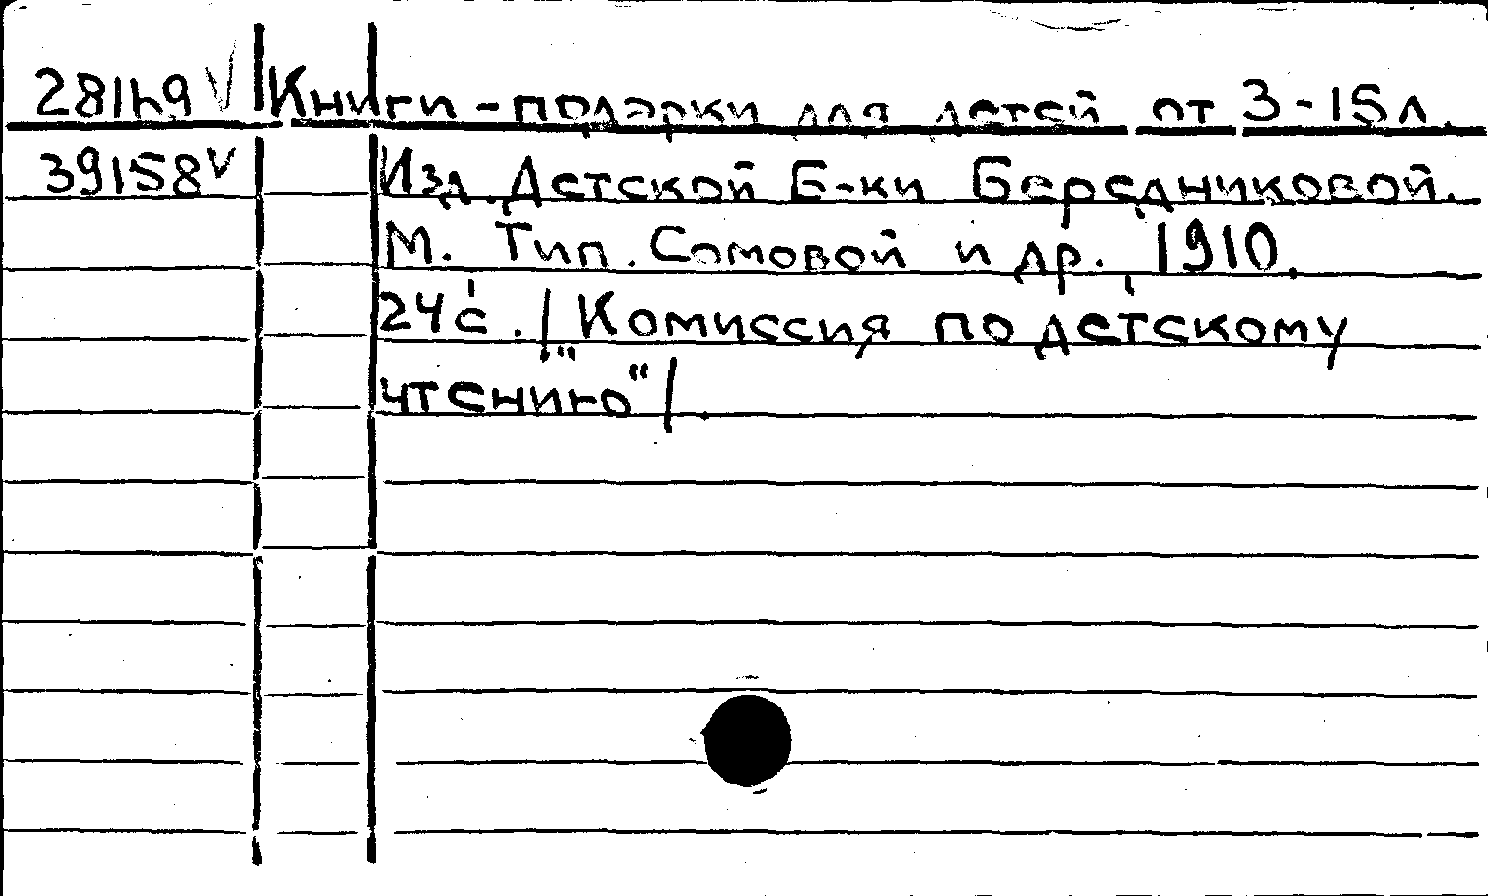 28149 V Книги-подарки для детей от 3-15 л.
39158 V Изд. Детской Б-ки Бередниковой.
М. Тип. Сомовой и др., 1910.
24 с. / "Комиссия по детскому
чтению" /.